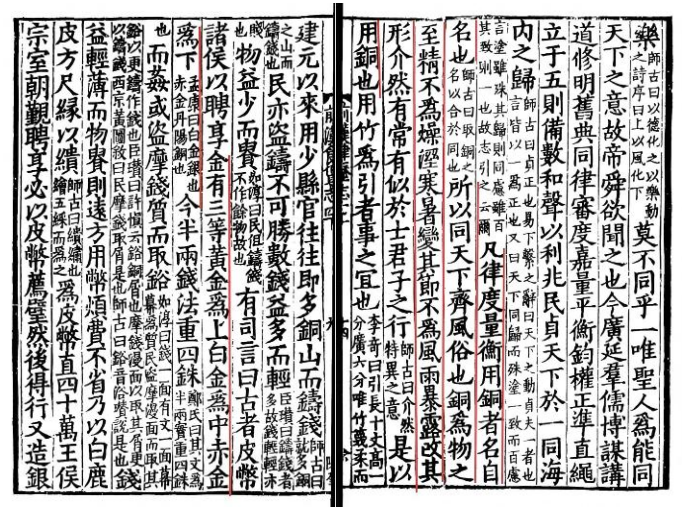 樂師古曰以德化之以樂動之詩序曰上以風化下莫不同乎一唯聖人爲能同
天下之意故帝舜欲聞之也今廣延羣儒博謀講
道修明舊典同律審度嘉量平衡鈞權正準直繩
立于五則備數和聲以利兆民貞天下於一同海
內之歸師古曰貞正也易下繫之辭曰天下之動貞夫一者也言皆以一爲正也又曰天下同歸而殊塗一致而百慮
言塗雖殊其歸則同慮雖百其致則一也故志引之云爾凡律度量衡用銅者名自
名也師古曰取銅之名以合於同也所以同天下齊風俗也銅爲物之
至精不爲燥溼寒暑變其節不爲風雨暴露改其
形介然有常有似於士君子之行師古曰介然特異之意是以
用銅也用竹爲引者事之宜也李奇曰引長十丈高一分廣六分唯竹篾柔而
建元以來用少縣官往往即多銅山而鑄錢師古曰就多銅
之山而鑄錢也民亦盜鑄不可勝數錢益多而輕臣瓚曰鑄錢者多故錢輕輕亦
賤也物益少而貴如淳曰民但鑄錢不作餘物故也有司言曰古者皮幣
諸侯以聘享金有三等黃金爲上白金爲中赤金
爲下孟康曰白金銀也赤金丹陽銅也今半兩錢法重四銖鄭氏曰其文爲半兩實重四銖
也而姦或盜摩錢質而取鋊如淳曰錢一面有文一面幕幕爲質民盜摩漫面而取其
鋊以更鑄作錢也臣瓚曰許愼云鋊銅屑也摩錢漫面以取其屑更以鑄錢西京黃圖敘曰民摩錢取屑是也師古曰鋊音浴瓚說是也錢
益輕薄而物貴則遠方用幣煩費不省乃以白鹿
皮方尺緣以繢師古曰繢繡也繪五綵而爲之爲皮幣直四十萬王侯
宗室朝覲聘享必以皮幣薦璧然後得行又造銀